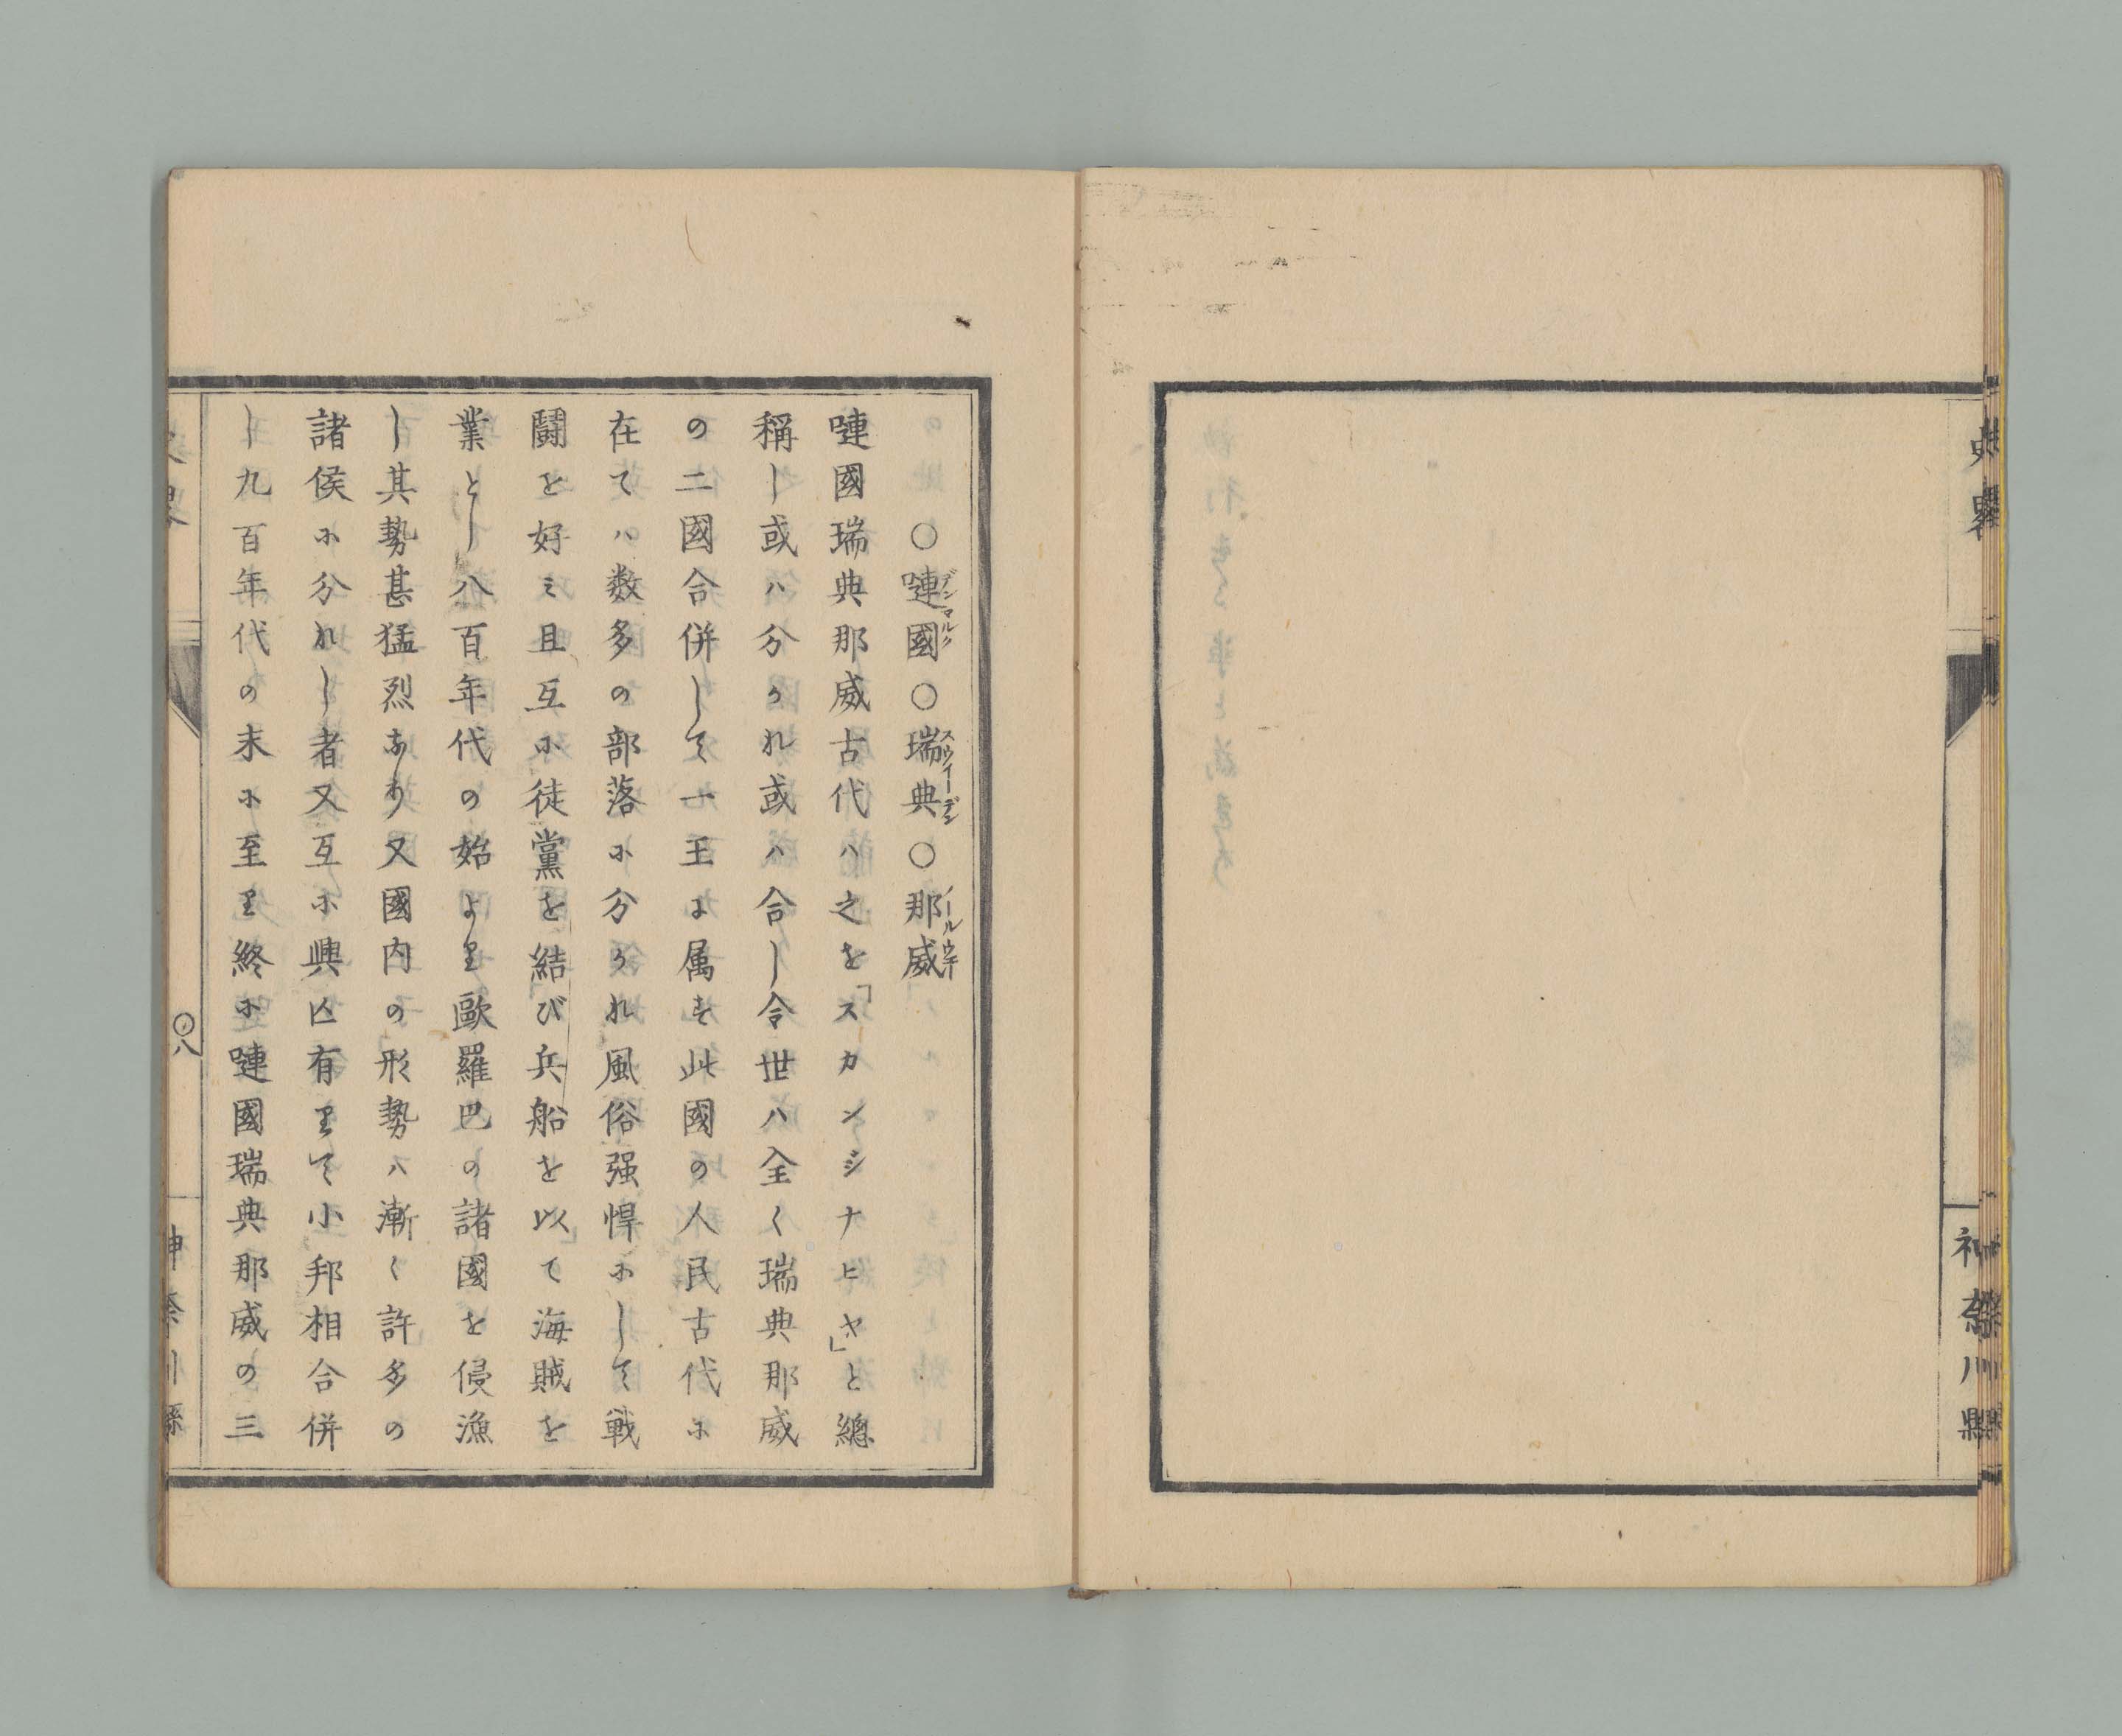 史畧
神奈川縣
○嗹國○瑞典○那威
デンマルク スウイーデン ノールウヰー
嗹國瑞典那威古代ハ之を「スカンシナヒヤ」と總
稱し或ハ分かれ或ハ合し今世ハ全く瑞典那威
の二國合併して一王に属す此國の人民古代に
在てハ数多の部落に分かれ風俗强悍にして戦
闘を好み且互に徒黨を結び兵船を以て海賊を
業とし八百年代の始より歐羅巴の諸國を侵漁
し其勢甚猛烈なり又國内の形勢ハ漸く許多の
諸侯に分れし者又互に興亡有りて小邦相合併
し九百年代の末に至り終に嗹國瑞典那威の三
史畧
○八
神奈川縣